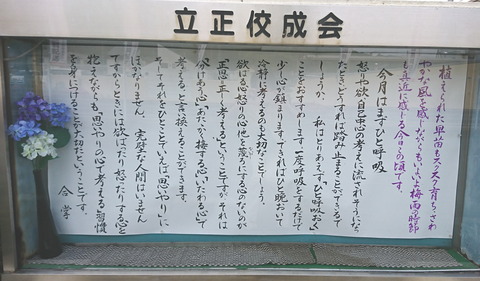 立正佼成会
植えられた早苗もスクスク育ち、さわ
やかな風を感じながらも、いよいよ梅雨の時節
も真近に感じる今日この頃です。
今月はまずひと呼吸
怒りや欲、自己中心の考えに流されそうになっ
たとき、どうすれば踏み止まることができるで
しょうか。私はとりあえず「ひと呼吸おく」
ことをおすすめします。一度呼吸をするだけで
少し心が鎮まります。できればひと晩おいて
冷静に考えるのも大切なことでしょう。
欲ばる心、怒りの心、他を蔑ろにする心のないのが
「正思=正しく考える」ということですが、それは
「分けあう心、あたたかく接する心、いたわる心で
考える」と言い換えることができます。
そしてそれをひとことでいえば「思いやり」に
ほかなりません。完璧な人間はいません
ですからときには欲ばったり怒ったりする心を
抱えながらも、思いやりの心で考える習慣
を身につけることが大切だということです。
合掌